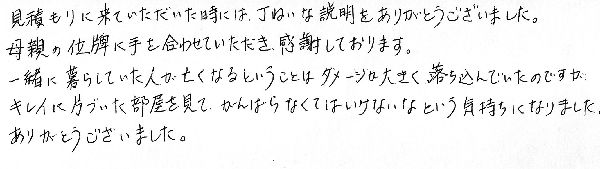 見積もりに来ていただいた時には、丁ねいな説明をありがとうございました。
母親の位牌に手を合わせていただき、感謝しております。
一緒に暮らしていた人が亡くなるということはダメージは大きく落ち込んでいたのですが、
キレイに片づいた部屋を見て、がんばらなくてはいけないなという気持ちになりました。
ありがとうございました。